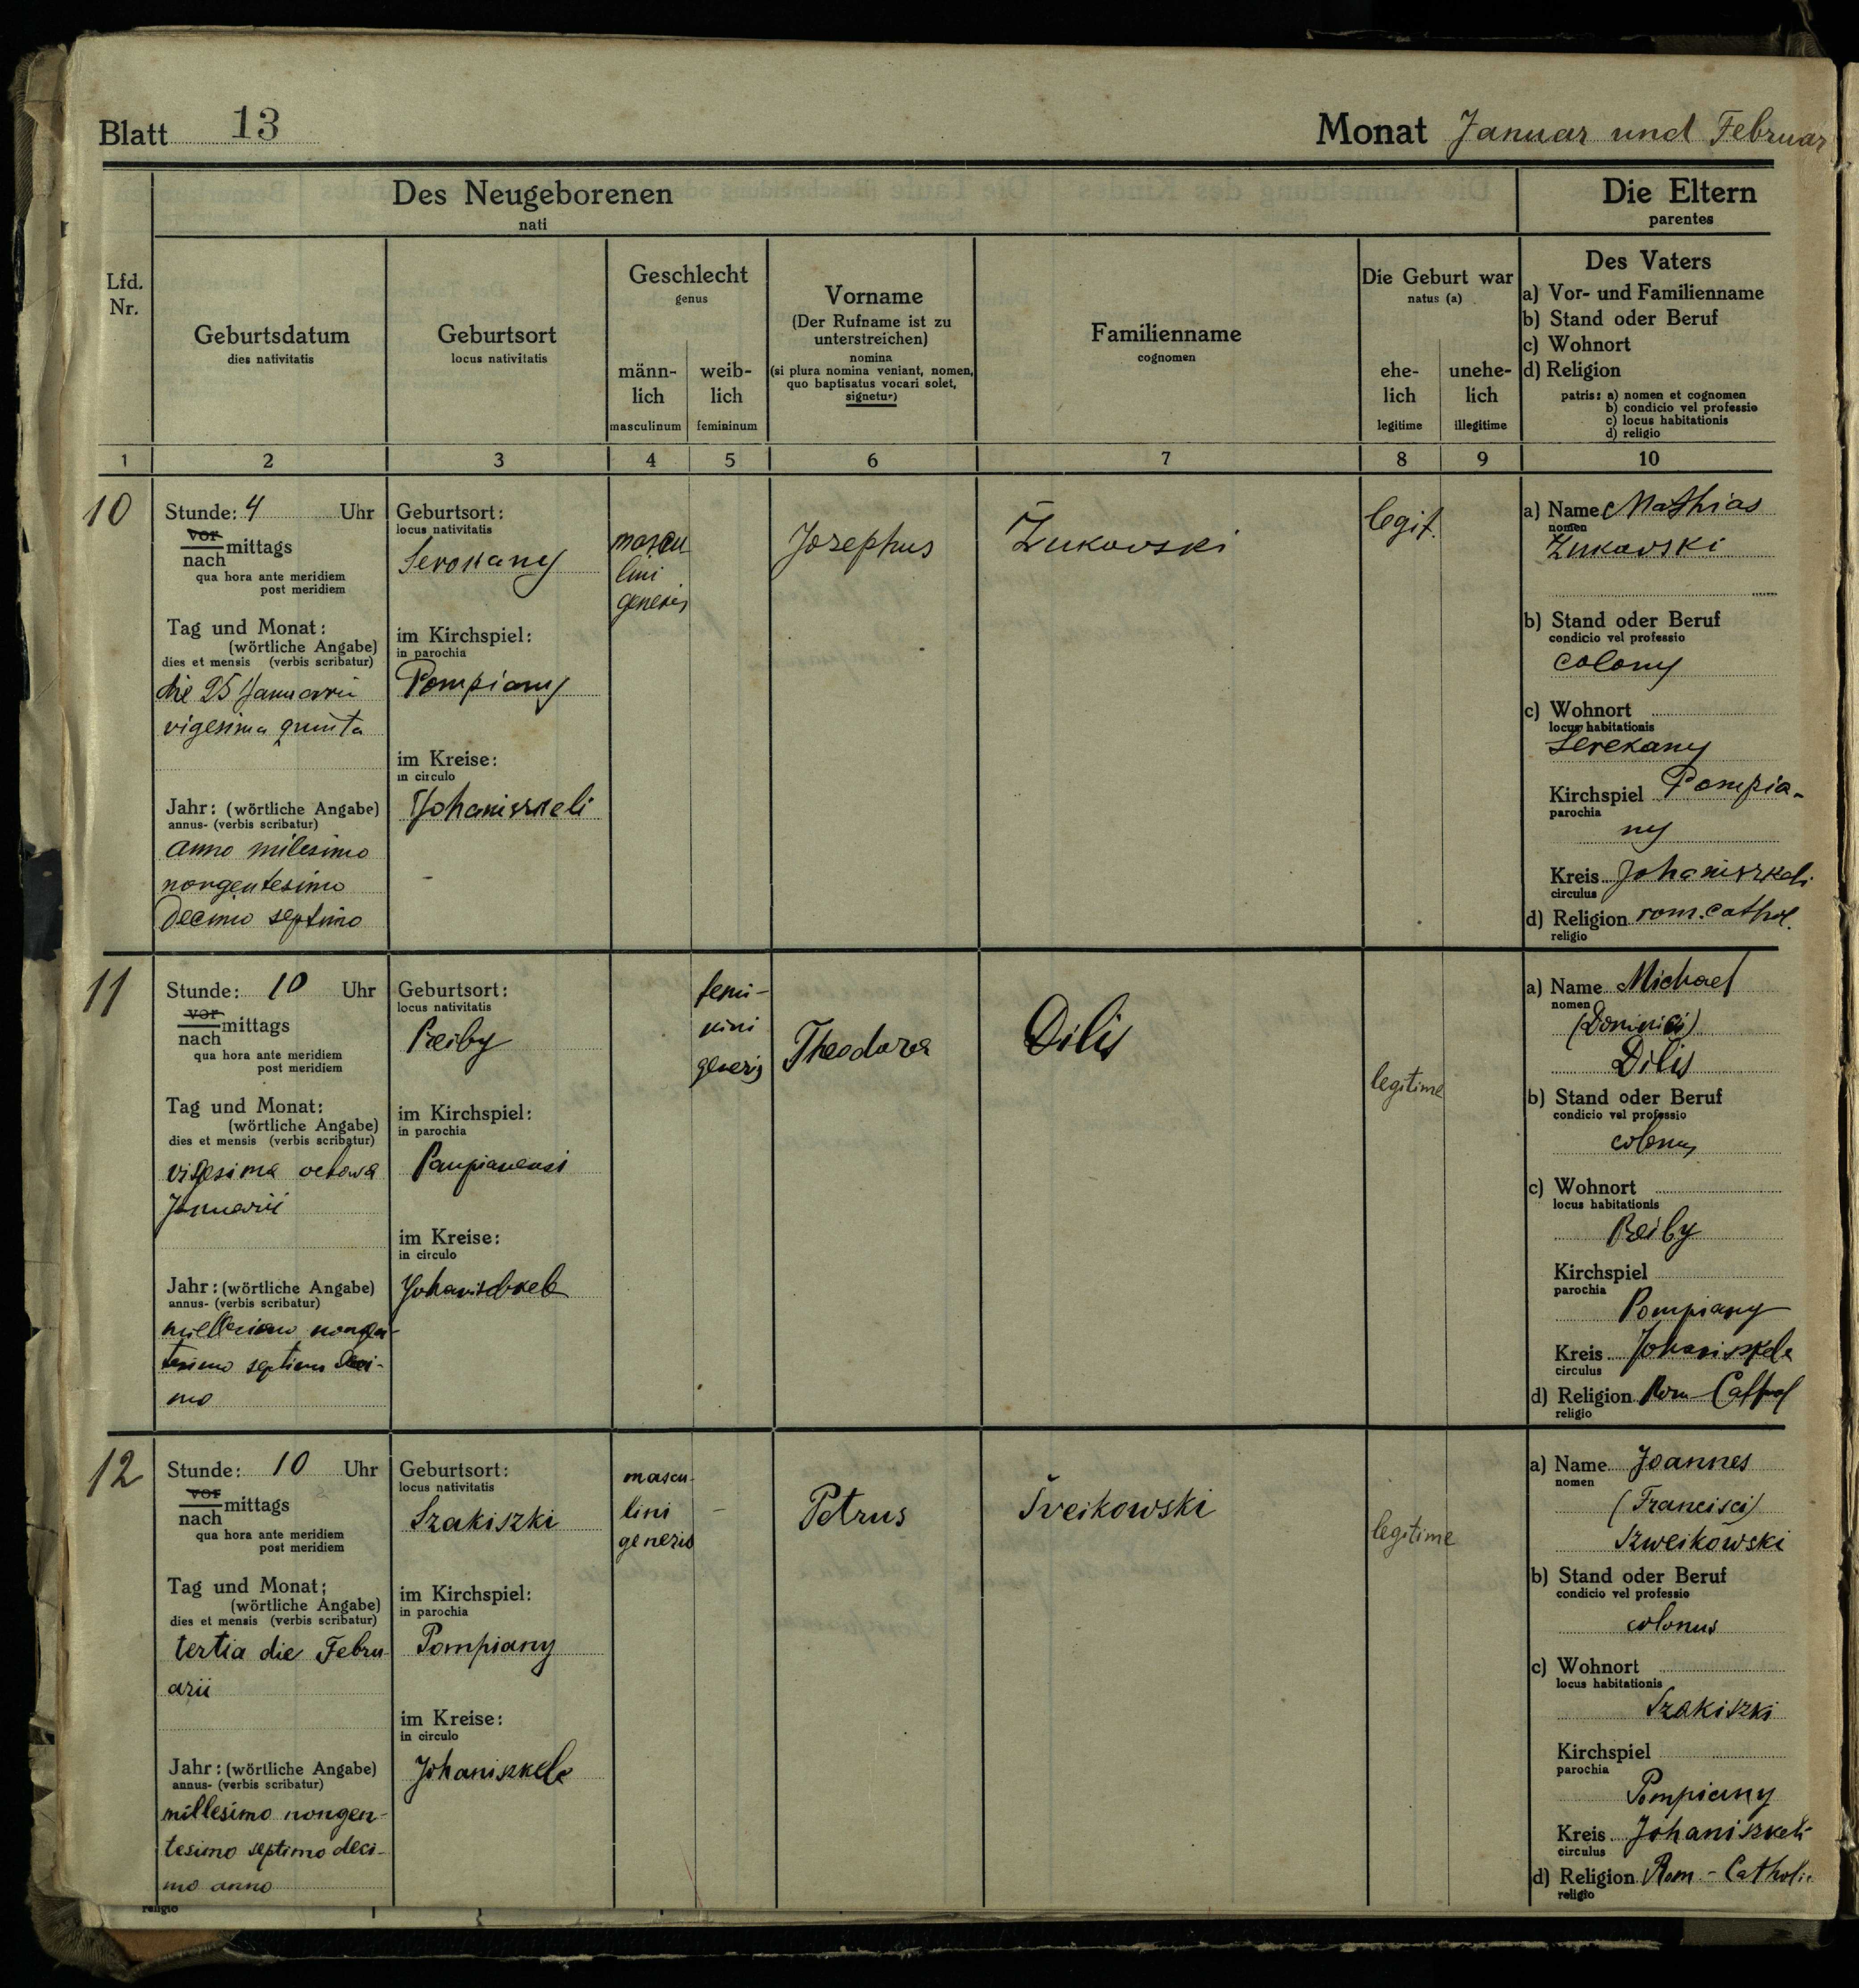 Blatt 13
Monat Januar und Februar
Des Neugeborenen
nati
Die Eltern
parentes
Lfd.
Nr.
Geburtsdatum
dies nativitatis
Geburtsort
locus nativitatis
Geschlecht
genus
männ-
lich
masculinum
weib-
lich
femininum
Vorname
(Der Rufname ist zu
unterstreichen)
nomina
(si plura nomina veniant, nomen,
quo baptisatus vocari solet,
signetur)
Familienname
cognomen
Die Geburt war
natus (a)
ehe-
lich
legitime
unehe-
lich
illegitime
Des Vaters
a) Vor- und Familienname
b) Stand oder Beruf
c) Wohnort
d) Religion
patris: a) nomen et cognomen
b) condicio vel professio
c) locus habitationis
d) religio
1 2 3 4 5 6 7 8 9 10
10
Stunde: 4 Uhr
vor
nach mittags
qua hora ante meridiem
post meridiem
Tag und Monat:
(wörtliche Angabe)
dies et mensis (verbis scribatur)
die 25 Januarii
vigesima quinta
Jahr: (wörtliche Angabe)
annus- (verbis scribatur)
anno milesimo
nongentesimo
decimo septimo
Geburtsort:
locus nativitatis
im Kirchspiel:
in parochia
Pompiany
im Kreise:
in circulo
Johaniszkeli
mascu
lini
generis
Josephus
Żukovski
legit.
a) Name Mathias
nomen
Żukovski
b) Stand oder Beruf
condicio vel professio
colony
c) Wohnort
locus habitationis
Serekany
Kirchspiel Pompia-
parochia
ny
Kreis Johaniszkeli
circulus
d) Religion rom. cathol.
religio
11
Stunde: 10 Uhr
vor
nach mittags
qua hora ante meridiem
post meridiem
Tag und Monat:
(wörtliche Angabe)
dies et mensis (verbis scribatur)
vigesima octova
Januarii
Jahr: (wörtliche Angabe)
annus- (verbis scribatur)
nongen-
tesimo septimo deci-
mo
Geburtsort:
locus nativitatis
im Kirchspiel:
in parochia
Pompianensi
im Kreise:
in circulo
femi-
nini
generis
Theodora
Dilis
legitime
a) Name Michael
nomen
(Dominici)
Dilis
b) Stand oder Beruf
condicio vel professio
colonus
c) Wohnort
locus habitationis
Kirchspiel
parochia
Pompiany
Kreis Johaniszkele
circulus
d) Religion Rom-Cathol
religio
12
Stunde: 10 Uhr
vor
nach mittags
qua hora ante meridiem
post meridiem
Tag und Monat:
(wörtliche Angabe)
dies et mensis (verbis scribatur)
tertia die Febru-
arii
Jahr: (wörtliche Angabe)
annus- (verbis scribatur)
millesimo nongen-
tesimo septimo deci-
mo anno
Geburtsort:
locus nativitatis
Szakiszki
im Kirchspiel:
in parochia
Pompiany
im Kreise:
in circulo
Johaniszkele
mascu-
lini
generis
-
Petrus
Šveikowski
legitime
a) Name Joannes
nomen
(Francisci)
Szweikowski
b) Stand oder Beruf
condicio vel professio
colonus
c) Wohnort
locus habitationis
Szakiszki
Kirchspiel
parochia
Pompiany
Kreis Johaniszkeli
circulus
d) Religion Rom-Catholic
religio
religio